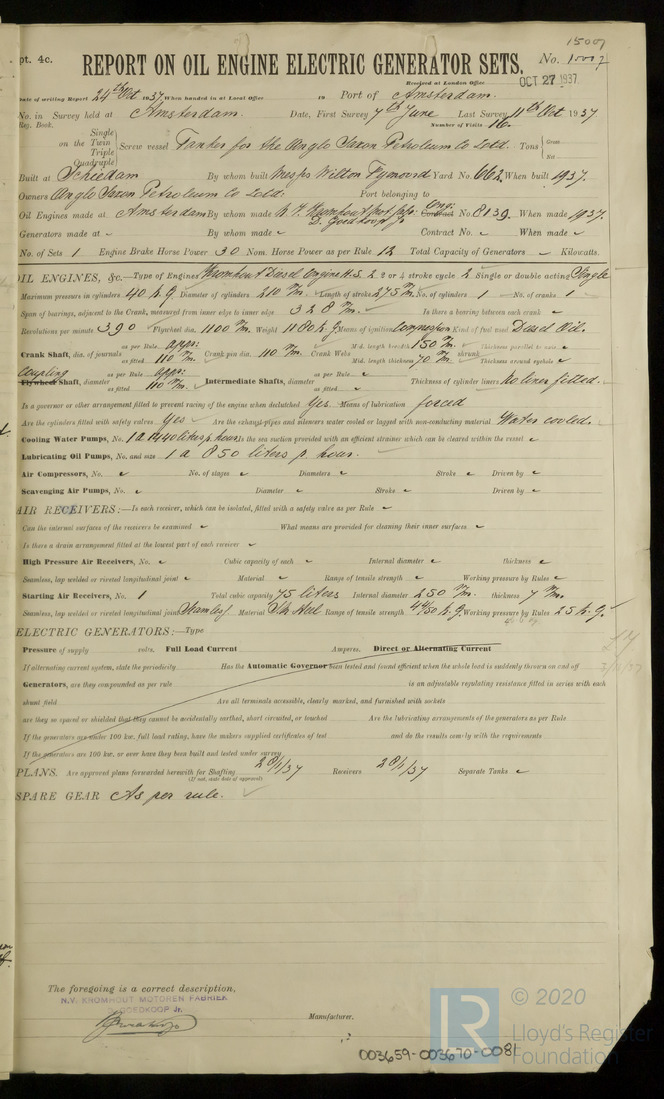 15007
pt. 4c. REPORT ON OIL ENGINE ELECTRIC GENERATOR SETS. No. 15007
Received at London Office OCT 27 1937
Date of writing Report 24th Oct 1937 When handed in at Local Office 19 Port of Amsterdam.
No. in Survey held at Amsterdam. Date, First Survey 7th June Last Survey 11th Oct 1937
Reg. Book. Number of Visits 16.
Single
on the Twin
Triple
Quadruple
Screw vessel Tanker for the Anglo Saxon Petroleum Co Ltd. Tons Gross
Net
Built at Schiedam By whom built Messrs Wilton Fijenoord Yard No. 662 When built 1937.
Owners Anglo Saxon Petroleum Co Ltd. Port belonging to
Oil Engines made at Amsterdam By whom made N.V. Kromhout Mot. fabr. D. Goedkoop Jr Eng: Contract No. 8139. When made 1937.
Generators made at By whom made Contract No. When made
No. of Sets 1 Engine Brake Horse Power 30 Nom. Horse Power as per Rule 12 Total Capacity of Generators Kilowatts.
OIL ENGINES, &c.—Type of Engines Kromhout Diesel Engine H.S. 2 2 or 4 stroke cycle 2 Single or double acting Single
Maximum pressure in cylinders 40 k.g. Diameter of cylinders 210 m/m. Length of stroke 275 m/m. No. of cylinders 1 No. of cranks 1
Span of bearings, adjacent to the Crank, measured from inner edge to inner edge 328 m/m. Is there a bearing between each crank
Revolutions per minute 390 Flywheel dia. 1100 m/m. Weight 1180 k.g. Means of ignition Compression Kind of fuel used Diesel Oil.
Crank Shaft, dia. of journals as per Rule appr: as fitted 110 m/m. Crank pin dia. 110 m/m. Crank Webs Mid. length breadth 150 m/m. Thickness parallel to axis
Mid. length thickness 70 m/m. shrunk Thickness around eyehole
Coupling
Flywheel Shaft, diameter as per Rule appr: as fitted 110 m/m. Intermediate Shafts, diameter as per Rule as fitted Thickness of cylinder liners No liner fitted.
Is a governor or other arrangement fitted to prevent racing of the engine when declutched Yes. Means of lubrication forced
Are the cylinders fitted with safety valves Yes Are the exhaust pipes and silencers water cooled or lagged with non-conducting material Water cooled.
Cooling Water Pumps, No. 1 a 1440 liters p. hour Is the sea suction provided with an efficient strainer which can be cleared within the vessel
Lubricating Oil Pumps, No. and size 1 a 850 liters p. hour.
Air Compressors, No. No. of stages Diameters Stroke Driven by
Scavenging Air Pumps, No. Diameter Stroke Driven by
AIR RECEIVERS:—Is each receiver, which can be isolated, fitted with a safety valve as per Rule
Can the internal surfaces of the receivers be examined What means are provided for cleaning their inner surfaces
Is there a drain arrangement fitted at the lowest part of each receiver
High Pressure Air Receivers, No. Cubic capacity of each Internal diameter thickness
Seamless, lap welded or riveted longitudinal joint Material Range of tensile strength Working pressure by Rules
Starting Air Receivers, No. 1 Total cubic capacity 75 liters Internal diameter 250 m/m. thickness 7 m/m.
Seamless, lap welded or riveted longitudinal joint Seamless Material S.M. Steel Range of tensile strength 44/50 k.g. Working pressure by Rules 25 k.g.
ELECTRIC GENERATORS:—Type
Pressure of supply volts. Full Load Current Amperes. Direct or Alternating Current
If alternating current system, state the periodicity Has the Automatic Governor been tested and found efficient when the whole load is suddenly thrown on and off
Generators, are they compounded as per rule is an adjustable regulating resistance fitted in series with each
shunt field Are all terminals accessible, clearly marked, and furnished with sockets
are they so spaced or shielded that they cannot be accidentally earthed, short circuited, or touched Are the lubricating arrangements of the generators as per Rule
If the generators are under 100 kw. full load rating, have the makers supplied certificates of test and do the results comply with the requirements
If the generators are 100 kw. or over have they been built and tested under survey
PLANS. Are approved plans forwarded herewith for Shafting 28/1/37 Receivers 28/1/37 Separate Tanks
(If not, state date of approval)
SPARE GEAR As per rule.
The foregoing is a correct description,
N.V. KROMHOUT MOTOREN FABRIEK
D. GOEDKOOP Jr.
Manufacturer.
003659-003670-0081
LR © 2020
Lloyd's Register
Foundation